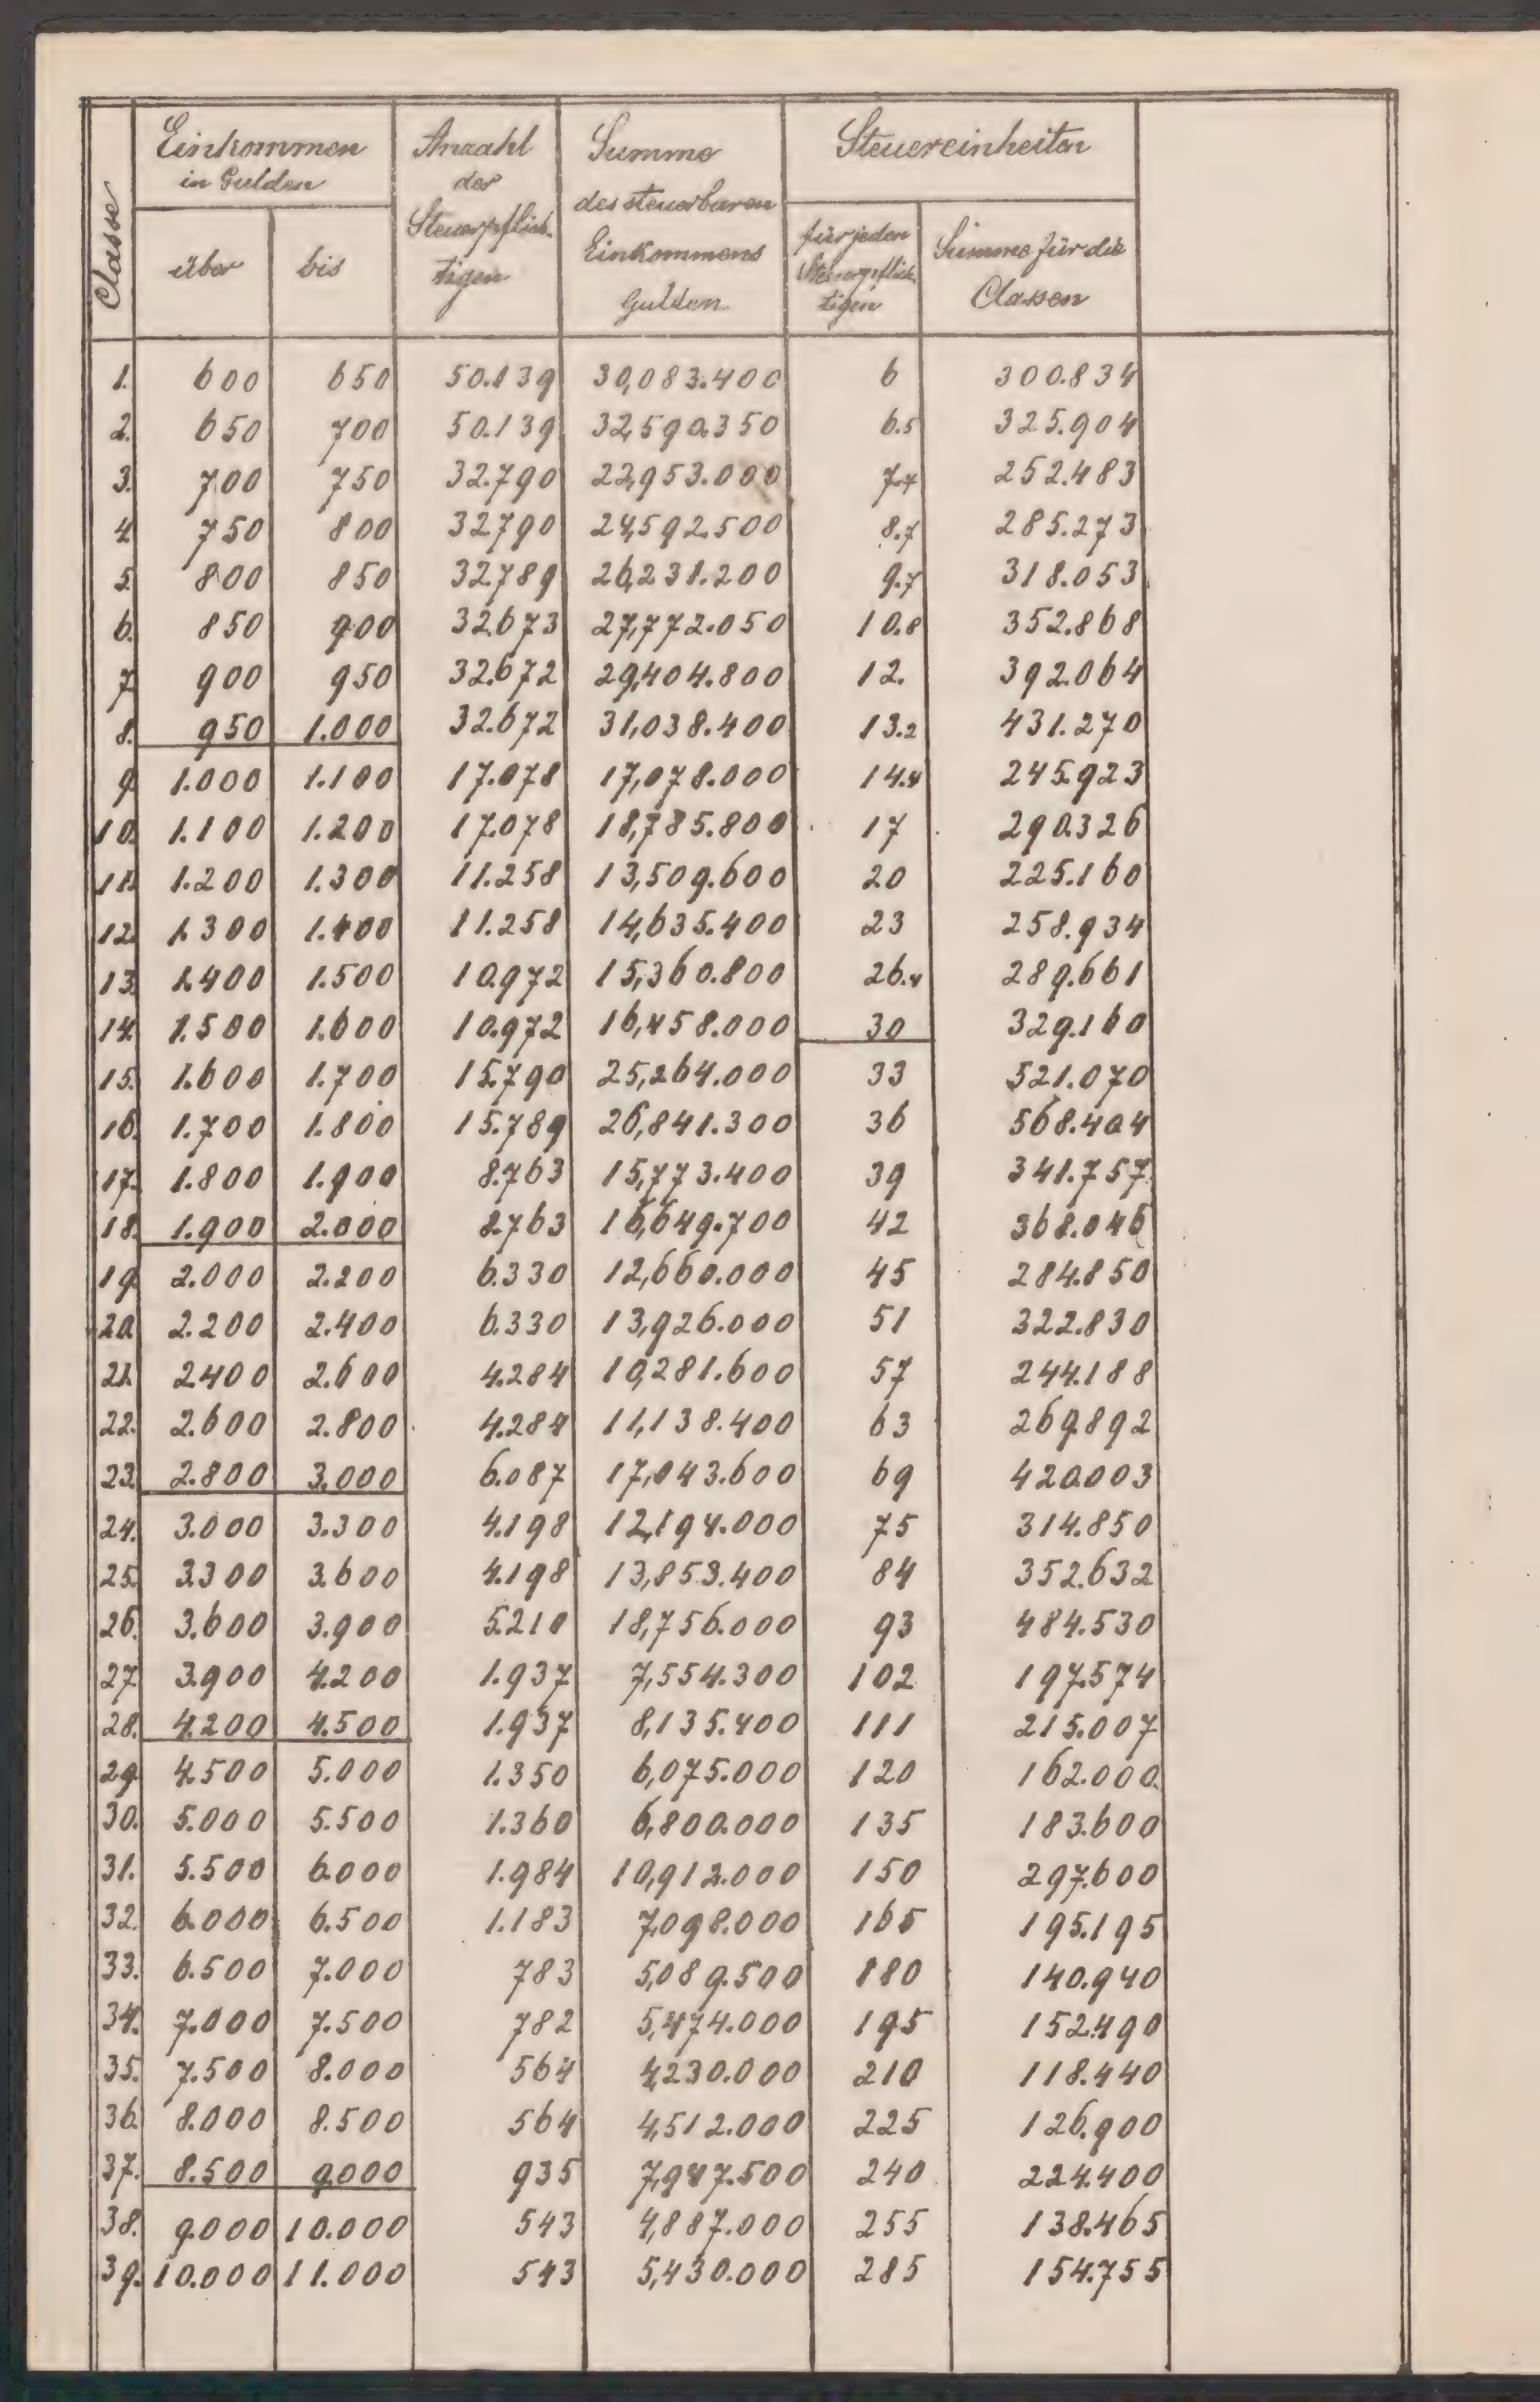 Classe
Einkommen
in Gulden
über bis
Anzahl
der
Steuerpflich-
tigen
Summe
des steuerbaren
Einkommens
Gulden
Steuereinheiten
für jeden
Steuerpflich-
tigen
Summe für die
Classen
1. 600 650 50.139 30,083.400 6 300.834
2. 650 700 50.139 32,590.350 6.5 325.904
3. 700 750 32.790 22,953.000 7.7 252.483
4. 750 800 32790 24,592.500 8.7 285.273
5. 800 850 32.789 26,231.200 9.7 318.053
6. 850 900 32.673 27,772.050 10.8 352.868
7. 900 950 32.672 29,404.800 12. 392.064
8. 950 1.000 32.672 31,038.400 13.2 431.270
9. 1.000 1.100 17.078 17,078.000 14.4 245.923
10. 1.100 1.200 17.078 18,785.800 17 290.326
11. 1.200 1.300 11.258 13,509.600 20 225.160
12. 1.300 1.400 11.258 14,635.400 23 258.934
13. 1.400 1.500 10.972 15,360.800 26.4 289.661
14. 1.500 1.600 10.972 16,458.000 30 329.160
15. 1.600 1.700 15.790 25,264.000 33 521.070
16. 1.700 1.800 15.789 26,841.300 36 568.404
17. 1.800 1.900 8.763 15,773.400 39 341.757
18. 1.900 2.000 8.763 16,649.700 42 368.046
19. 2.000 2.200 6.330 12,660.000 45 284.850
20. 2.200 2.400 6.330 13,926.000 51 322.830
21. 2.400 2.600 4.284 10,281.600 57 244.188
22. 2.600 2.800 4.284 11,138.400 63 269.892
23. 2.800 3.000 6.087 17,043.600 69 420.003
24. 3.000 3.300 4.198 12,194.000 75 314.850
25. 3.300 3.600 4.198 13,853.400 84 352.632
26. 3.600 3.900 5.210 18,756.000 93 484.530
27. 3.900 4.200 1.937 7,554.300 102 197.574
28. 4.200 4.500 1.937 8,135.400 111 215.007
29. 4.500 5.000 1.350 6,075.000 120 162.000
30. 5.000 5.500 1.360 6,800.000 135 183.600
31. 5.500 6.000 1.984 10,912.000 150 297.600
32. 6.000 6.500 1.183 7,098.000 165 195.195
33. 6.500 7.000 783 5,089.500 180 140.940
34. 7.000 7.500 782 5,474.000 195 152.490
35. 7.500 8.000 564 4,230.000 210 118.440
36. 8.000 8.500 564 4,512.000 225 126.900
37. 8.500 9.000 935 7,947.500 240 224.400
38. 9.000 10.000 543 4,887.000 255 138.465
39. 10.000 11.000 543 5,430.000 285 154.755